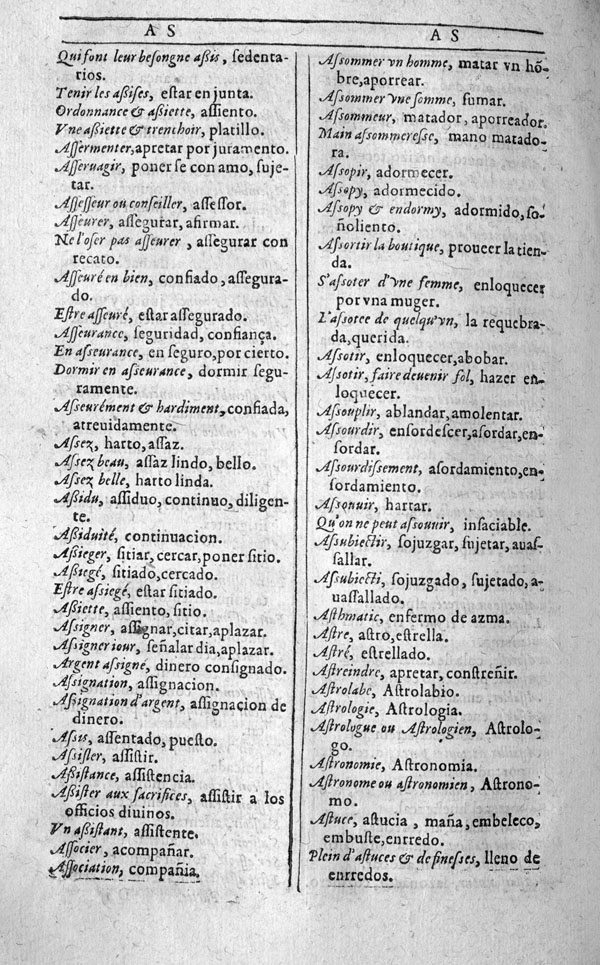 AS
AS
Qui font leur beſongne aßis, ſedenta-
rios.
Tenir les aßiſes, eſtar en junta.
Ordonnance & aßiette, aſſiento.
Vne aßiette & trenchoir, platillo.
Aſſermenter, apretar por juramento.
Aſſeruagir, poner ſe con amo, ſuje-
tar.
Aſſeſſeur ou conſeiller, aſſeſſor.
Aſſeurer, aſſegurar, afirmar.
Ne l'oſer pas aſſeurer, aſſegurar con
recato.
Aſſeuré en bien, confiado, aſſegura-
do.
Eſtre aſſeuré, eſtar aſſegurado.
Aſſeurance, ſeguridad, confiança.
En aſseurance, en ſeguro, por cierto.
Dormir en aſseurance, dormir ſegu-
ramente.
Aſſeurément & hardiment, confiada,
atreuidamente.
Aſſez, harto, aſſaz.
Aſſez beau, aſſaz lindo, bello.
Aſſez belle, harto linda.
Aßidu, aſſiduo, continuo, diligen-
te.
Aßiduité, continuacion.
Aßieger, sitiar, cercar, poner ſitio.
Aßiegé, ſitiado, cercado.
Eſtre aſsiegé, eſtar ſitiado.
Aßiette, aſſiento, ſitio.
Aſsigner, aſſignar, citar, aplazar.
Aſsigner iour, ſeñalar dia, aplazar.
Argent aſsigné, dinero conſignado.
Aſsignation, aſſignacion.
Aſsignation d'argent, aſſignacion de
dinero.
Aſsis, aſſentado, pueſto.
Aſsiſter, aſſiſtir.
Aßiſtance, aſſiſtencia.
Aßiſter aux ſacrifices, aſſiſtir a los
officios diuinos.
Vn aßiſtant, aſſiſtente.
Aſſocier, acompañar.
Aſſociation, compañia.
Aſsommer vn homme, matar vn hõ-
bre, aporrear.
Aſsommer vne ſomme, ſumar.
Aſsommeur, matador, aporreador.
Main aſsommereſſe, mano matado-
ra.
Aſsopir, adormecer.
Aſsopy, adormecido.
Aſsopy & endormy, adormido, ſo-
ñoliento.
Aſsortir la boutique, proueer la tien-
da.
S'aſsoter d'vne femme, enloquecer
por vna muger.
L'aſsotee de quelqu'vn, la requebra-
da, querida.
Aſsotir, enloquecer, abobar.
Aſsotir, faire deuenir fol, hazer en-
loquecer.
Aſsouplir, ablandar, amolentar.
Aſsourdir, enſordeſcer, aſordar, en-
ſordar.
Aſsourdiſſement, aſordamiento, en-
ſordamiento.
Aſsouuir, hartar.
Qu'on ne peut aſsouuir, inſaciable.
Aſsubiectir, ſojuzgar, ſujetar, auaſ-
ſallar.
Aſsubiecti, ſojuzgado, ſujetado, a-
uaſſallado.
Aſthmatic, enfermo de azma.
Aſtre, aſtro, eſtrella.
Aſtré, eſtrellado.
Aſtreindre, apretar, conſtreñir.
Aſtrolabe, Aſtrolabio.
Aſtrologie, Aſtrologia.
Aſtrologue ou Aſtrologien, Aſtrolo-
go.
Aſtronomie, Aſtronomia.
Aſtronome ou aſtronomien, Aſtrono-
mo.
Aſtuce, aſtucia, maña, embeleco,
embuſte, enrredo.
Plein d'aſtuces & de fineſſes, lleno de
enrredos.